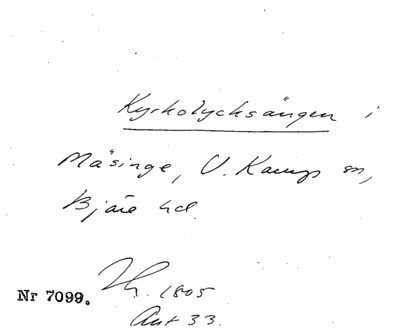 Kyrkolycksängen i
Mäsinge, V. Karup sn,
Bjäre hd.
Nr 7099.
1805
Akt 33.